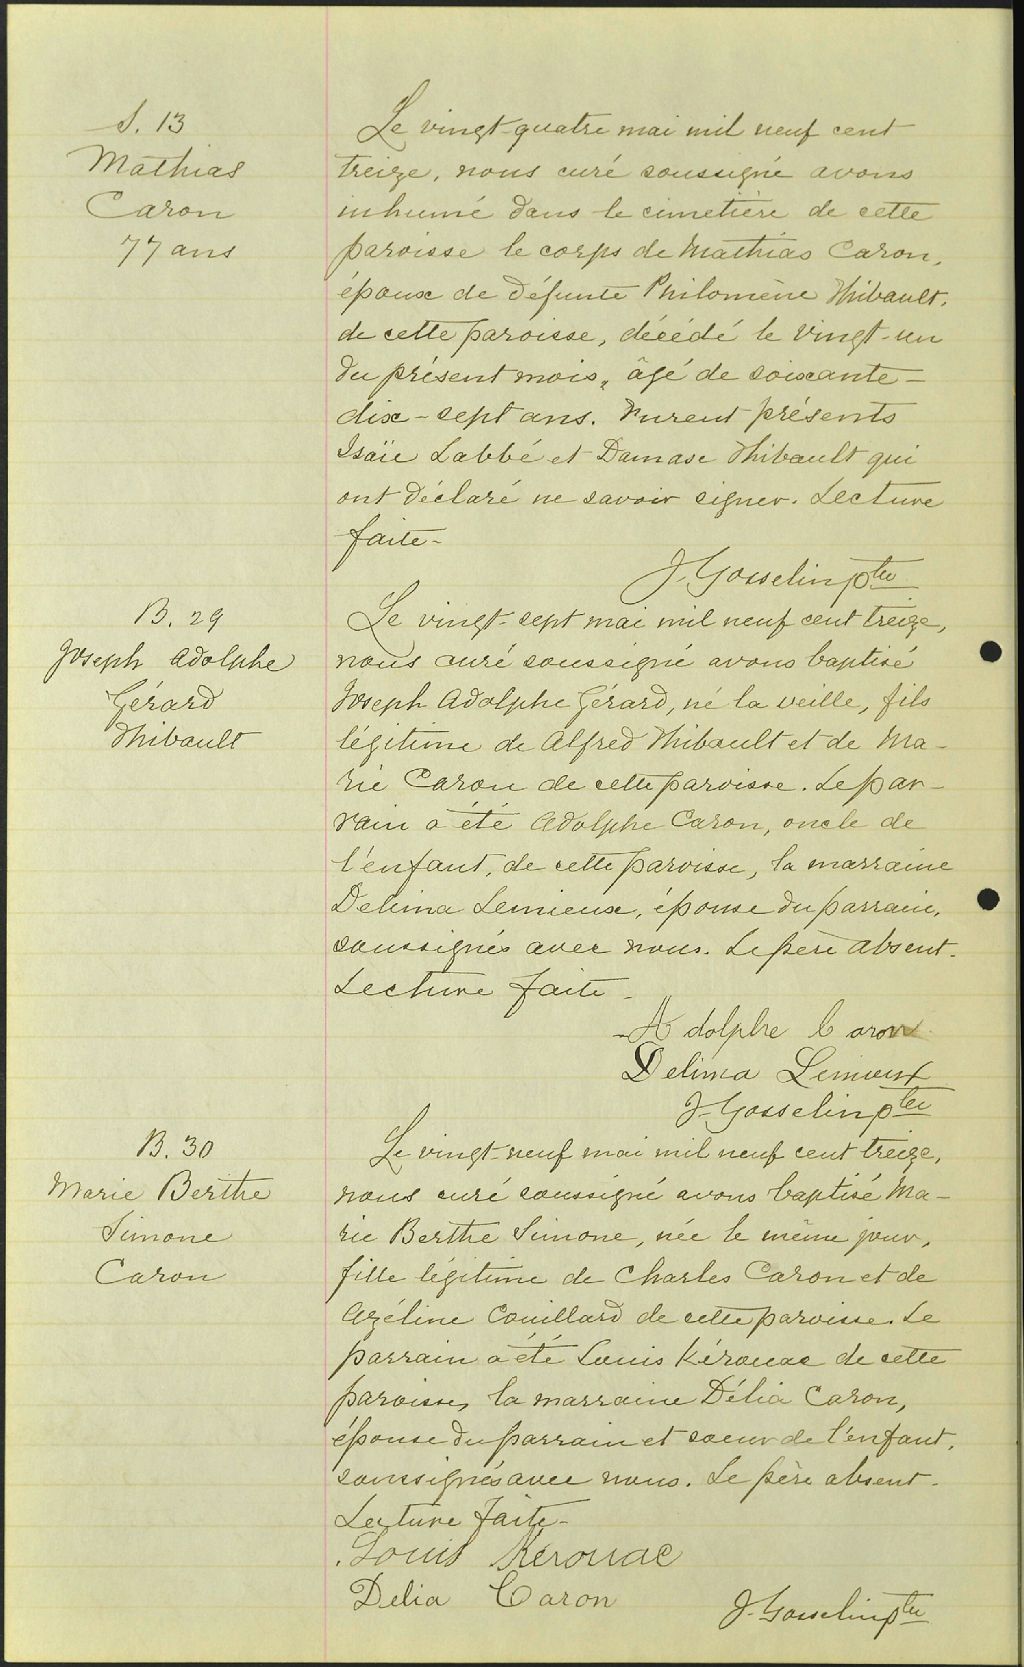 S. 13
Mathias
Caron
77 ans
Le vingt-quatre mai mil neuf cent
treize, nous curé soussigné avons
inhumé dans le cimetière de cette
paroisse le corps de Mathias Caron,
époux de défunte Philomène Thibault,
de cette paroisse, décédé le vingt-un
du présent mois, âgé de soixante-
dix-sept ans. Furent présents
Isaïe Labbé et Damase Thibault qui
ont déclaré ne savoir signer. Lecture
faite-
J. Gosselin ptre
B. 29
Joseph Adolphe
Gérard
Thibault
Le vingt-sept mai mil neuf cent treize,
nous curé soussigné avons baptisé
Joseph Adolphe Gérard, né la veille, fils
légitime de Alfred Thibault et de Ma-
rie Caron de cette paroisse. Le par-
rain a été Adolphe Caron, oncle de
l'enfant, de cette paroisse, la marraine
Delima Lemieux, épouse du parrain,
soussignés avec nous. Le père absent.
Lecture faite-
Adolphe Caron
Delima Lemieux
J. Gosselin ptre
B. 30
Marie Berthe
Simone
Caron
Le vingt-neuf mai mil neuf cent treize,
nous curé soussigné avons baptisé Ma-
rie Berthe Simone, née le même jour,
fille légitime de Charles Caron et de
Azéline Couillard de cette paroisse. Le
parrain a été Louis Kérouac de cette
paroisse, la marraine Délia Caron,
épouse du parrain et soeur de l'enfant,
soussignés avec nous. Le père absent.
Lecture faite-
Louis Kérouac
Delia Caron
J. Gosselin ptre